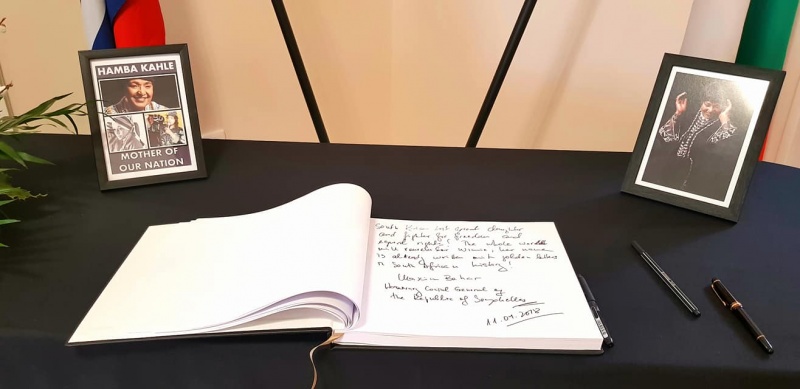 HAMBA KAHLE
MOTHER OF
OUR NATION
South lost great daughter
and fighter for freedom and
equal rights! The whole world
will remember Winnie, her
is already written with golden letters
in South African history!
Maxim Behar
Honorary Consul General of
the Republic of Seychelles
11.04.2018